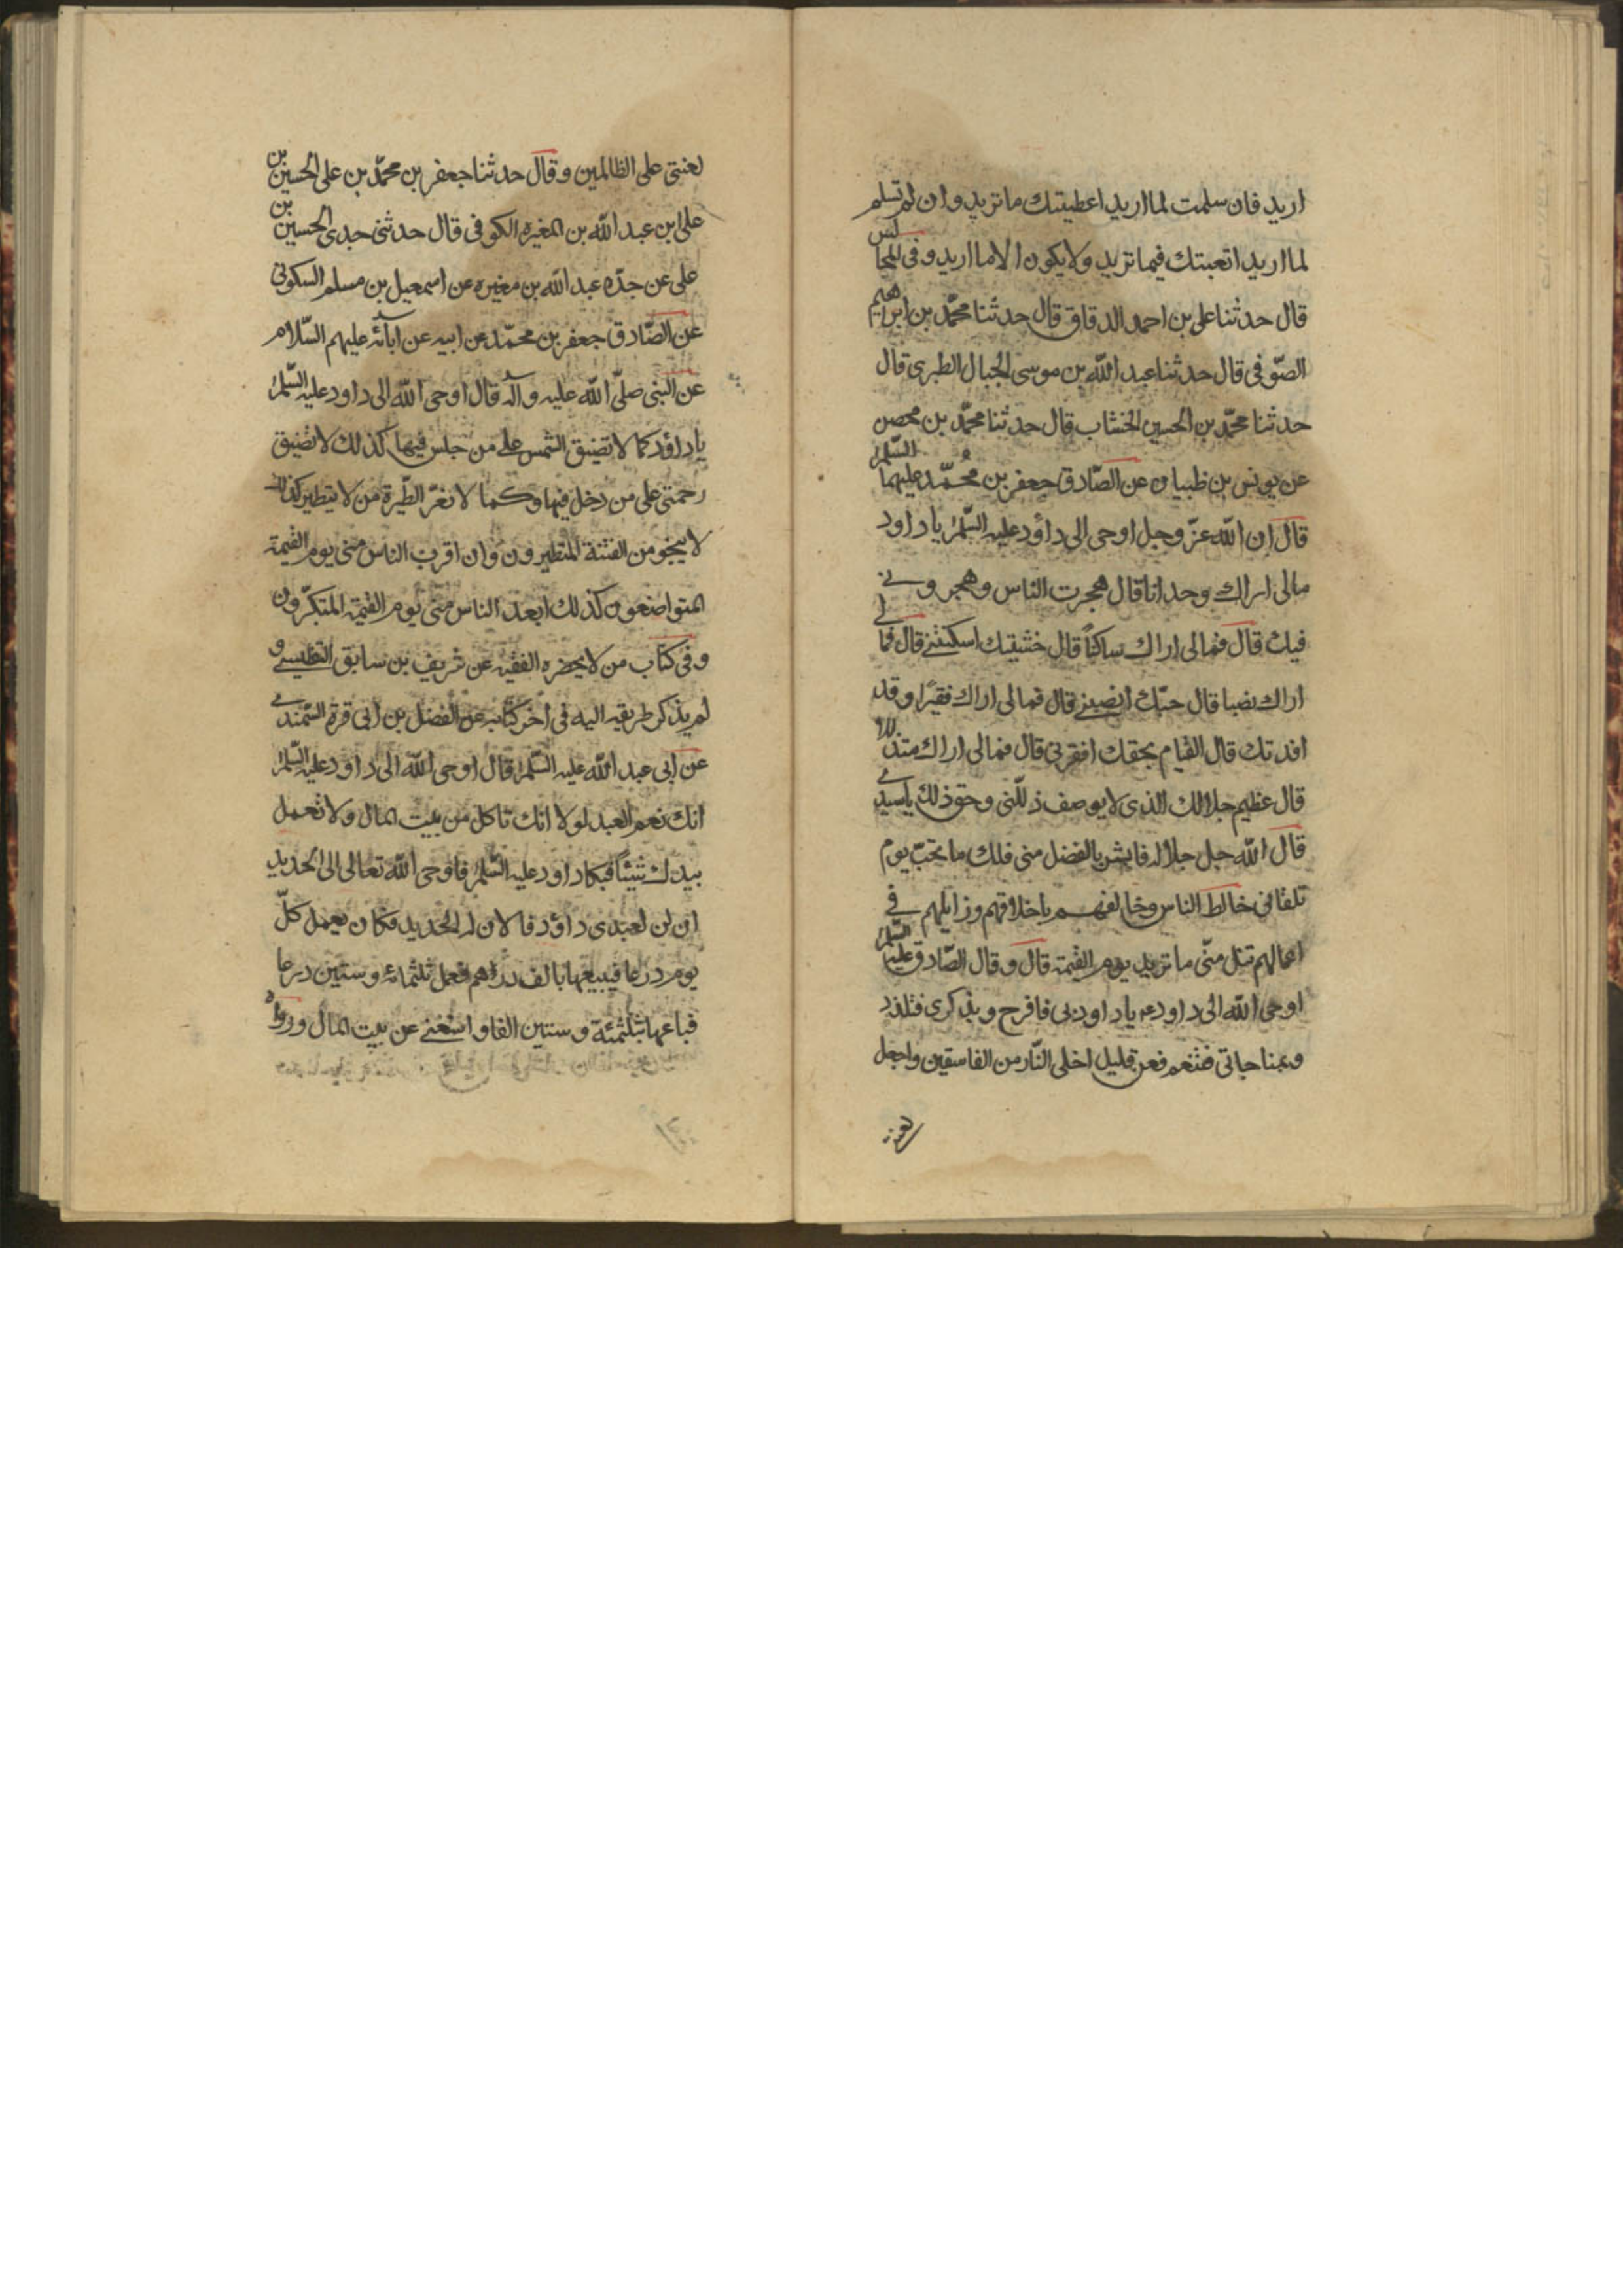 اريد فان سلمت لما اريد اعطيتك ما تريد وان لم تسلم
لما اريد اتعبتك فيما تريد ولا يكون الا ما اريد وفى المجالس
قال حدثنا على بن احمد الدقاق قال حدثنا محمّد بن ابرهيم
الصّوفى قال حدثنا عبد الله بن موسى الجبال الطبرى قال
حدثنا محمّد بن الحسين الخشاب قال حدثنا محمّد بن محصن
عن يونس بن ظبيان عن الصّادق جعفر بن محُمّد عليهما السّلم
قال ان الله عزّ وجل اوحى الى داؤد عليه السّلم يا داود
مالى اراك وحدانا قال هجرت الناس وهجرونى
فيك قال فمالى اراك ساكتاً قال خشيتك اسكتتنى قال فمالى
اراك نصبا قال حبّك انصبنى قال فمالى اراك فقيرًا وقد
افدتك قال القيام بحقك افقرنى قال فمالى اراك متذللا
قال عظيم جلالك الذى لا يوصف ذللّنى وحق ذلك يا سيدى
قال الله جل جلاله فابشر بالفضل منى فلك ما تحبّ يوم
تلقانى خالط الناس وخالقهم باخلاقهم وزايلهم فى
اعمالهم تنل منّى ما تريد يوم القيمة قال وقال الصّادق عليه السّلم
اوحى الله الى داود ع يا داود بى فافرح وبذكرى فتلذذ
وبمناجاتى فتنعم فعن قليل اخلى النّار من الفاسقين واجعل
لعنتى
لعنتى على الظالمين وقال حدثنا جعفر بن محمّد بن على الحسين بن
على ابن عبد الله بن المغيره الكوفى قال حدثنى جدى الحسين بن
على عن جدّه عبد الله بن مغيره عن اسمعيل بن مسلم السكونى
عن الصّادق جعفر بن محمّد عن ابيه عن ابآئه عليهم السّلام
عن النبى صلّى الله عليه واله قال اوحى الله الى داود عليه السّلم
يا داؤد كما لا تضيق الشمس على من جلس فيها كذلك لا تضيق
رحمتى على من دخل فيها وكما لا تغرّ الطّيرة من لا يتطير كذلك
لا ينجو من الفتنة المتطيرون وان اقرب الناس منى يوم القيمة
المتواضعون كذلك ابعد الناس منى يوم القيمة المتكبّرون
وفى كتاب من لا يحضره الفقيه عن شريف بن سابق التفليسى و
لم يذكر طريقه اليه فى اخر كتابه عن الفضل بن ابى قرة السّمندى
عن ابى عبد الله عليه السّلم قال اوحى الله الى داود عليه السّلم
انك نعم العبد لولا انك تاكل من بيت المال ولا تعمل
بيدك شيئاً فبكا داود عليه السّلم فاوحى الله تعالى الى الحديد
ان لن لعبدى داؤد فالان له الحديد فكان يعمل كلّ
يوم درعا فيبيعها بالف دراهم فعمل ثلثمائة وستين درعا
فباعها بثلثمئة وستين الفا واستغنى عن بيت المال ورواه